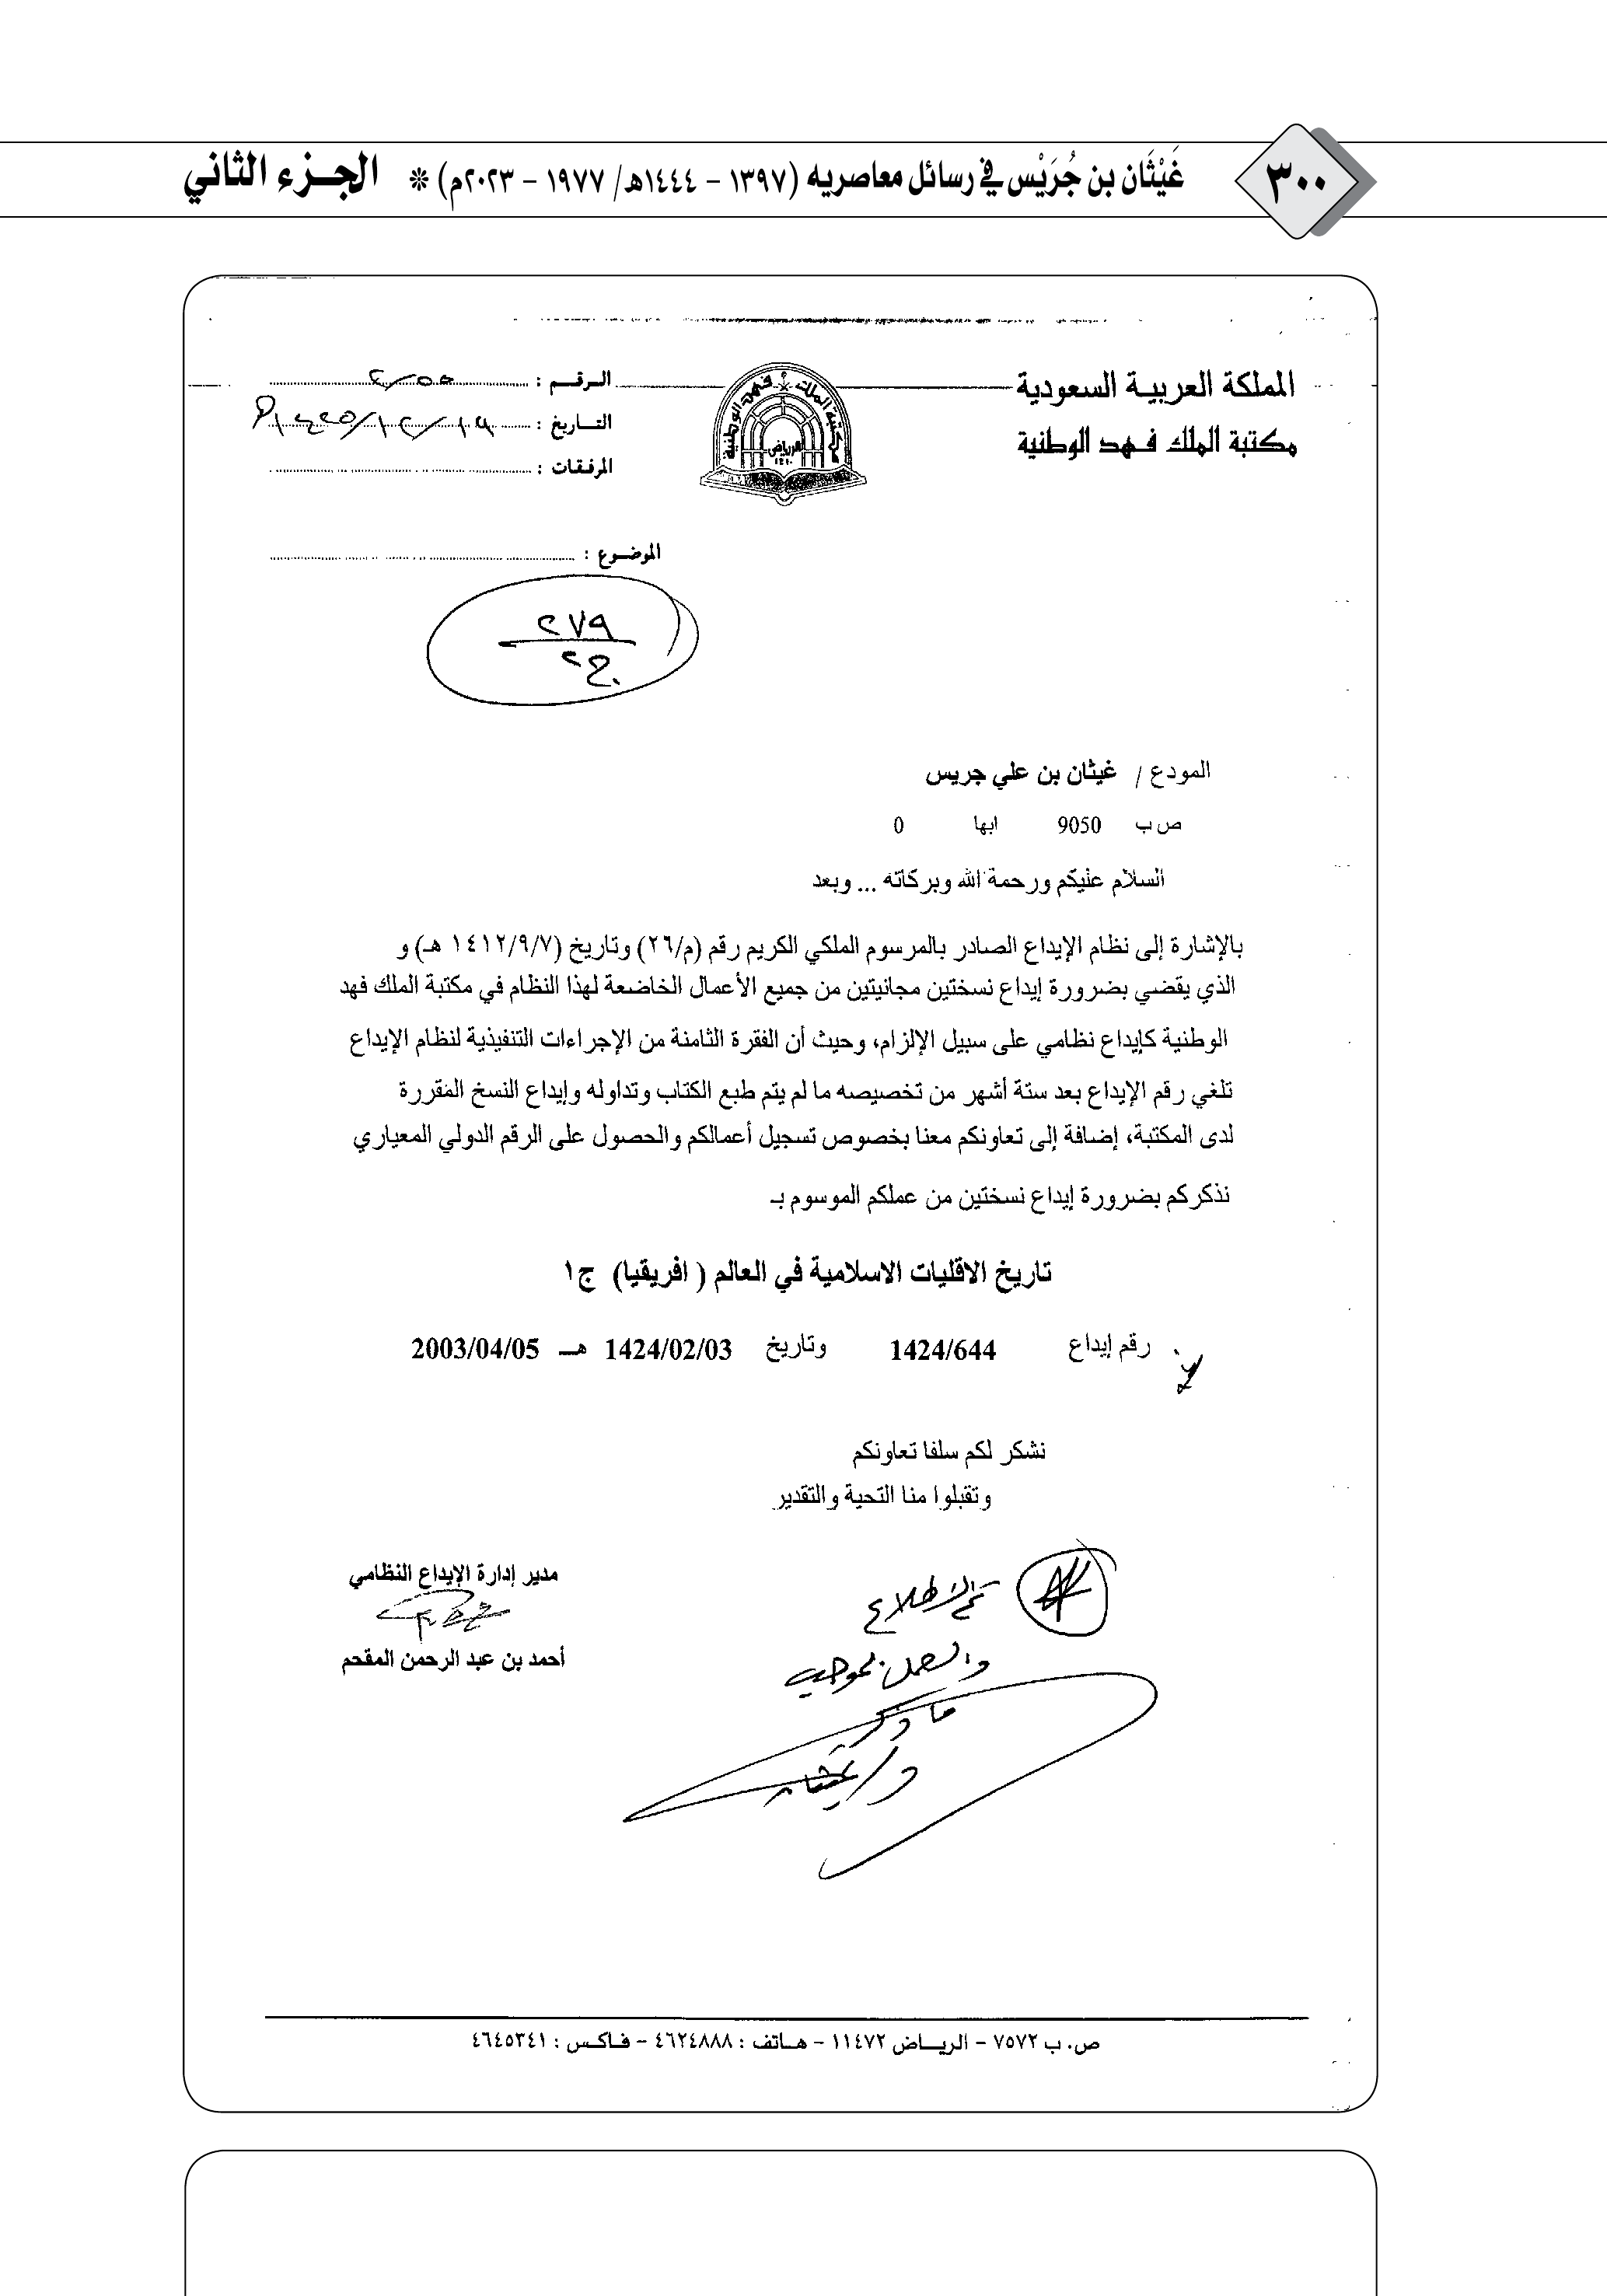 ٣٠٠ غَيْثَان بن جُرَيْس في رسائل معاصريه (١٣٩٧ - ١٤٤٤هـ/ ١٩٧٧ - ٢٠٢٣م) * الجـزء الثاني
المملكة العربية السعودية
مكتبة الملك فهد الوطنية
مكتبة الملك فهد الوطنية
الرياض
الرقم :
التاريخ : ١٤٢٥/١٢/١٩هـ
المرفقات :
الموضوع :
٢٧٩
المودع / غيثان بن علي جريس
ص ب 9050 ابها 0
السلام عليكم ورحمة الله وبركاته ... وبعد
بالإشارة إلى نظام الإيداع الصادر بالمرسوم الملكي الكريم رقم (م/٢٦) وتاريخ (١٤١٢/٩/٧ هـ) و
الذي يقضي بضرورة إيداع نسختين مجانيتين من جميع الأعمال الخاضعة لهذا النظام في مكتبة الملك فهد
الوطنية كإيداع نظامي على سبيل الإلزام، وحيث أن الفقرة الثامنة من الإجراءات التنفيذية لنظام الإيداع
تلغي رقم الإيداع بعد ستة أشهر من تخصيصه ما لم يتم طبع الكتاب وتداوله وإيداع النسخ المقررة
لدى المكتبة، إضافة إلى تعاونكم معنا بخصوص تسجيل أعمالكم والحصول على الرقم الدولي المعياري
نذكركم بضرورة إيداع نسختين من عملكم الموسوم بـ
تاريخ الاقليات الاسلامية في العالم ( افريقيا) ج١
رقم إيداع 1424/644 وتاريخ 1424/02/03 هـ 2003/04/05
نشكر لكم سلفا تعاونكم
وتقبلوا منا التحية والتقدير
مدير إدارة الإيداع النظامي
أحمد بن عبد الرحمن المقحم
تم الاطلاع
والعمل بموجب
ما ذكر
د/ غيثان
ص. ب ٧٥٧٢ - الرياض ١١٤٧٢ - هاتف : ٤٦٢٤٨٨٨ - فاكس : ٤٦٤٥٣٤١